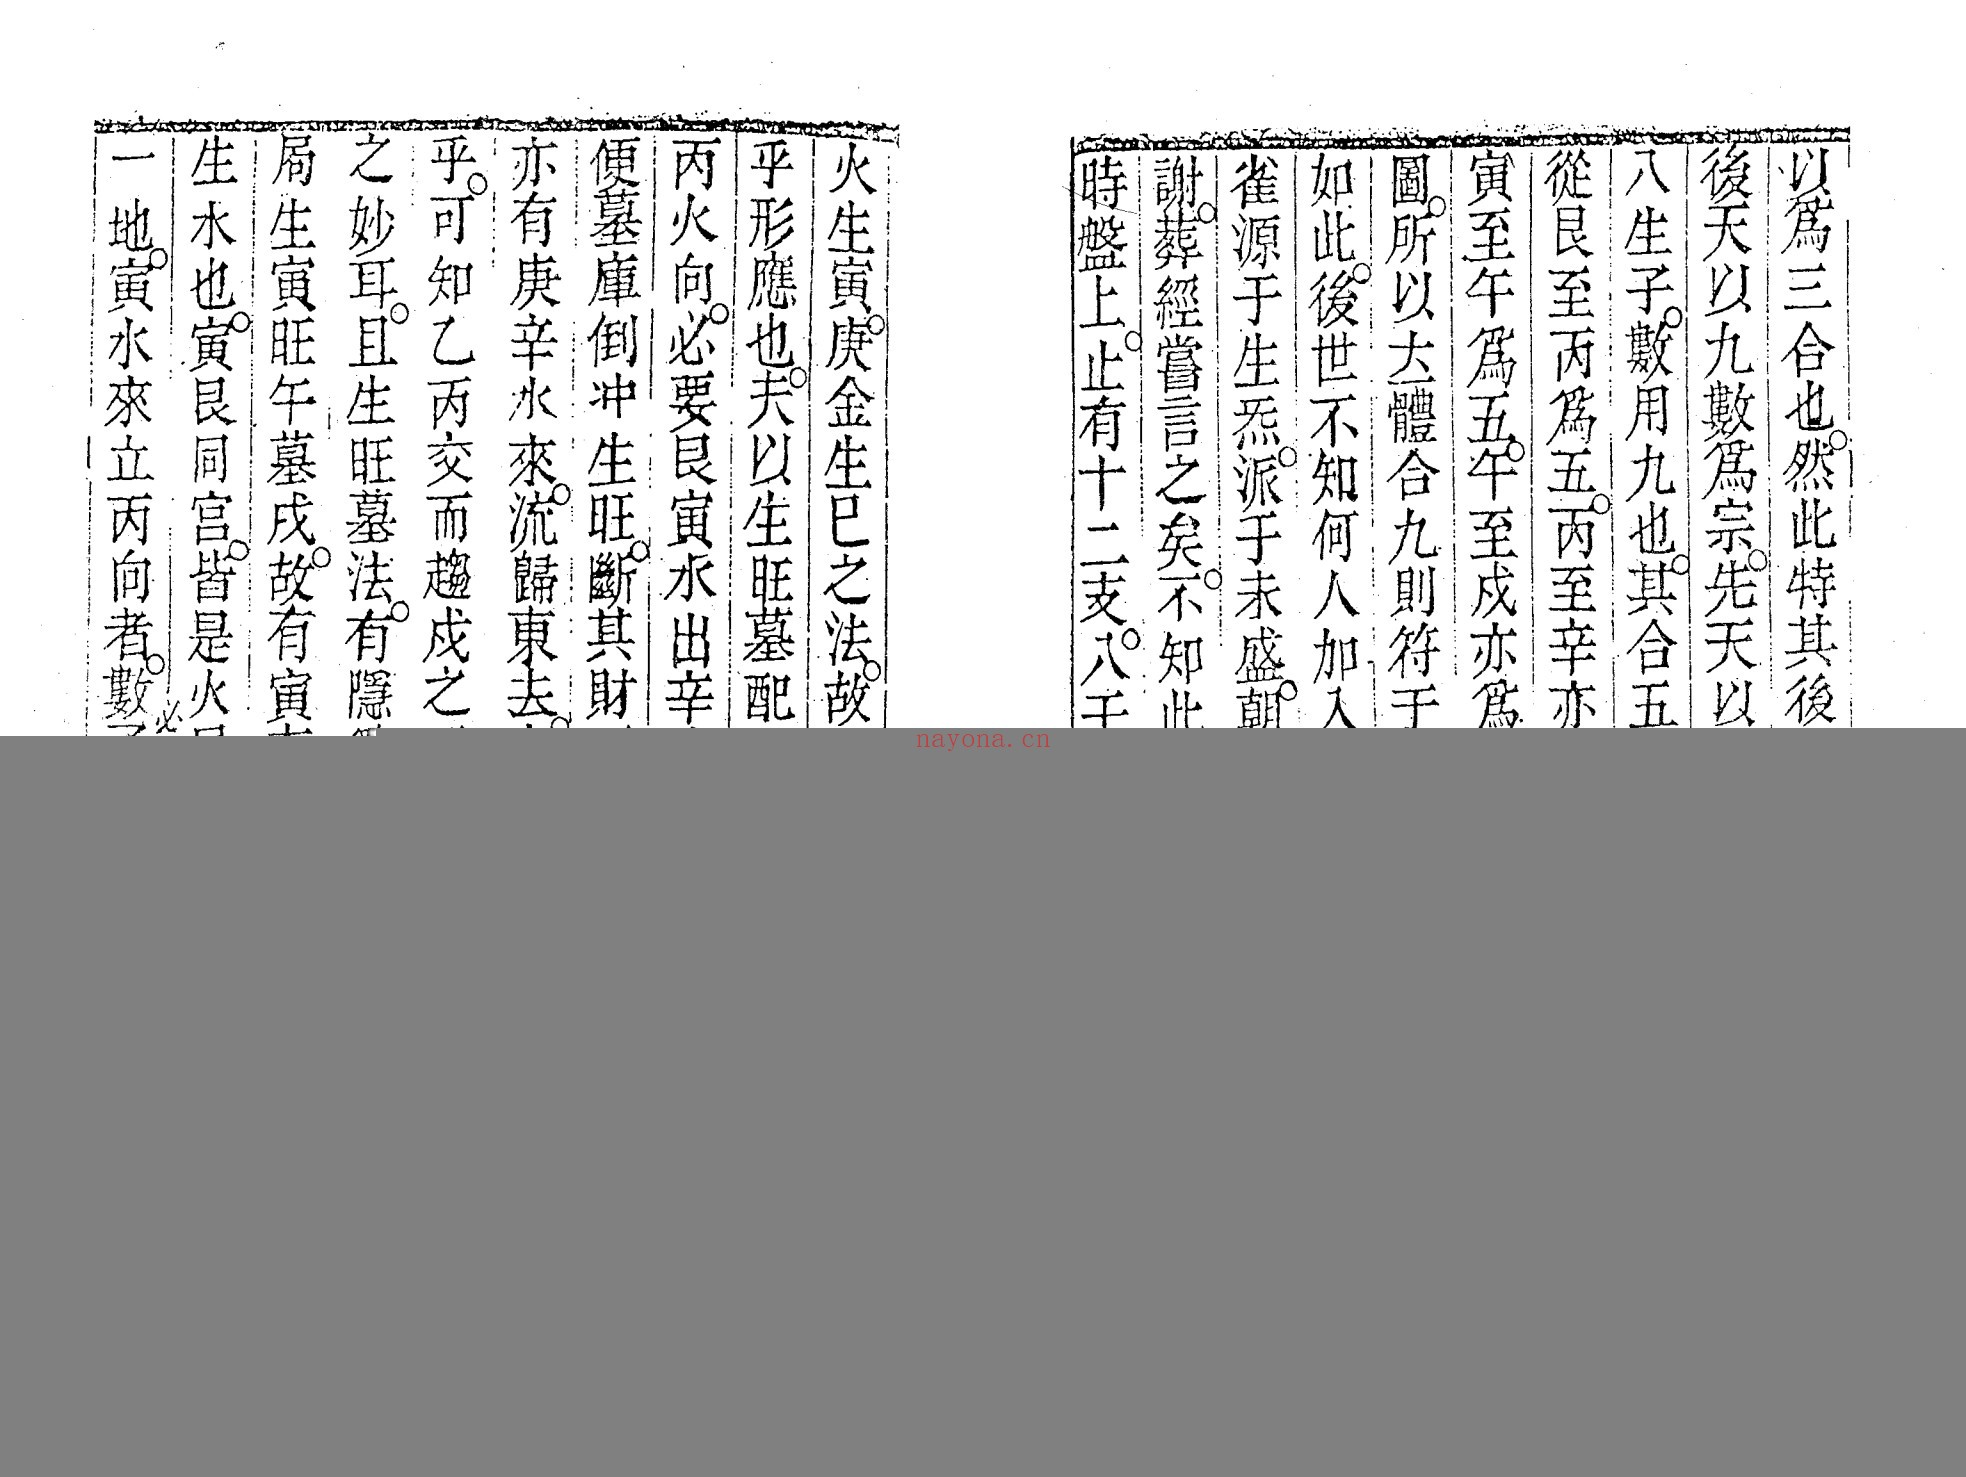 以爲三合也。然此特其後
後天以九數爲宗。先天以
八生子。數用九也。其合五
從艮至丙爲五。丙至辛亦
寅至午爲五。午至戍亦爲
圖。所以大體合九則符于
如此。後世不知何人加入
雀源于生炁。派于未盛。朝
謝。葬經嘗言之矣。不知此
時盤上。止有十二支。八干
火生寅。庚金生巳之法。故
乎形應也。夫以生旺墓配
丙火向。必要艮寅水出辛
便墓庫倒冲生旺。斷其財
亦有庚辛水來。流歸東去。
乎。可知乙丙交而趨戍之
之妙耳。且生旺墓法。有隱
局生寅旺午墓戍。故有寅
生水也。寅艮同宫。皆是火
一地。寅水來立丙向者。數
必
nayona.cn